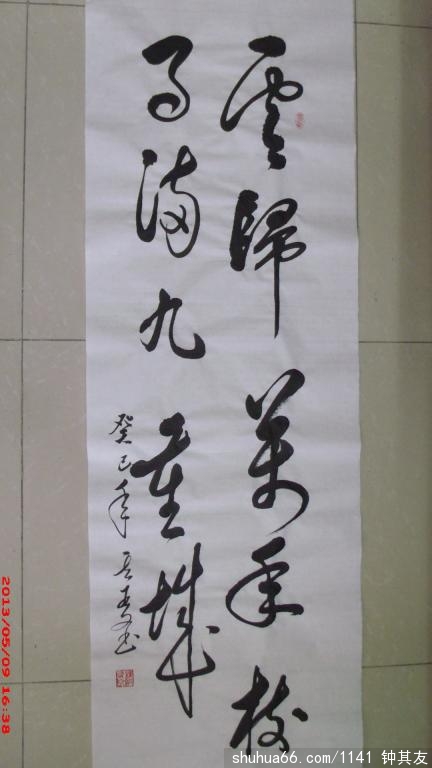 雲歸萬年樹
月滿九重城
癸巳年其友書
2013/05/09 16:38
shuhua66.com/1141 钟其友